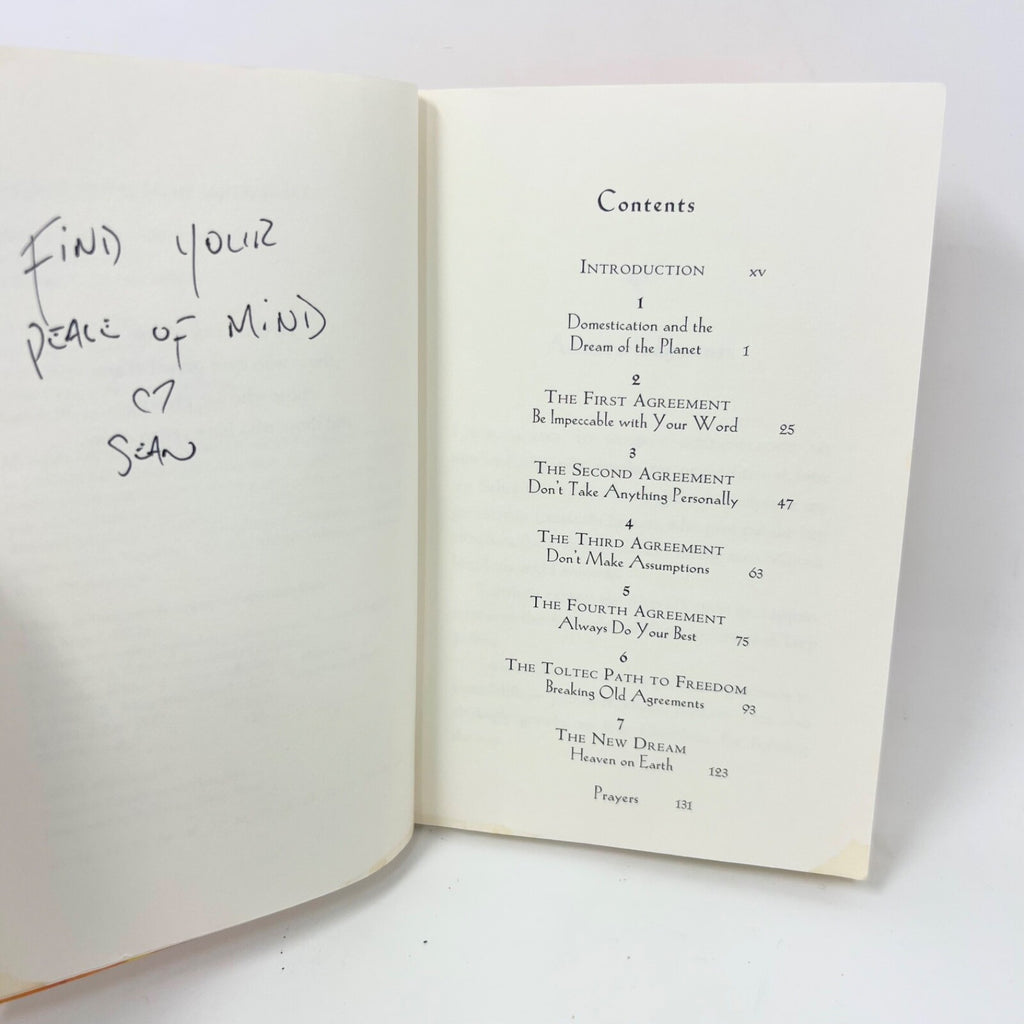 FIND YOUR
PEACE OF MIND
♡
SEAN
Contents
INTRODUCTION xv
1
Domestication and the
Dream of the Planet 1
2
THE FIRST AGREEMENT
Be Impeccable with Your Word 25
3
THE SECOND AGREEMENT
Don't Take Anything Personally 47
4
THE THIRD AGREEMENT
Don't Make Assumptions 63
5
THE FOURTH AGREEMENT
Always Do Your Best 75
6
THE TOLTEC PATH TO FREEDOM
Breaking Old Agreements 93
7
THE NEW DREAM
Heaven on Earth 123
Prayers 131